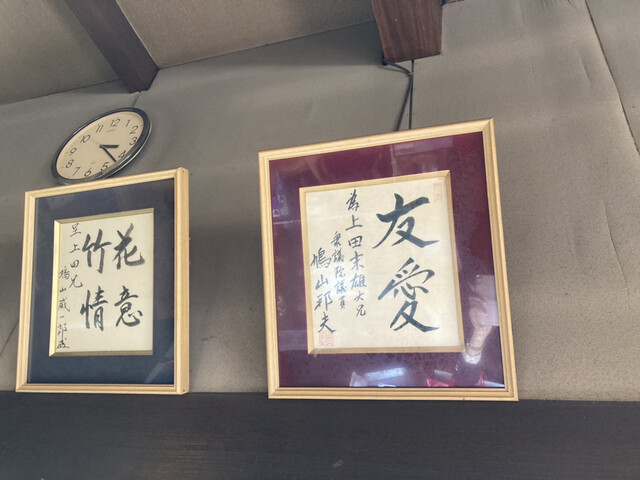 花意
竹情
呈上田兄
鳩山威一郎
友愛
為上田末雄大兄
衆議院議員
鳩山邦夫
12
1
2
3
4
5
6
7
8
9
10
11